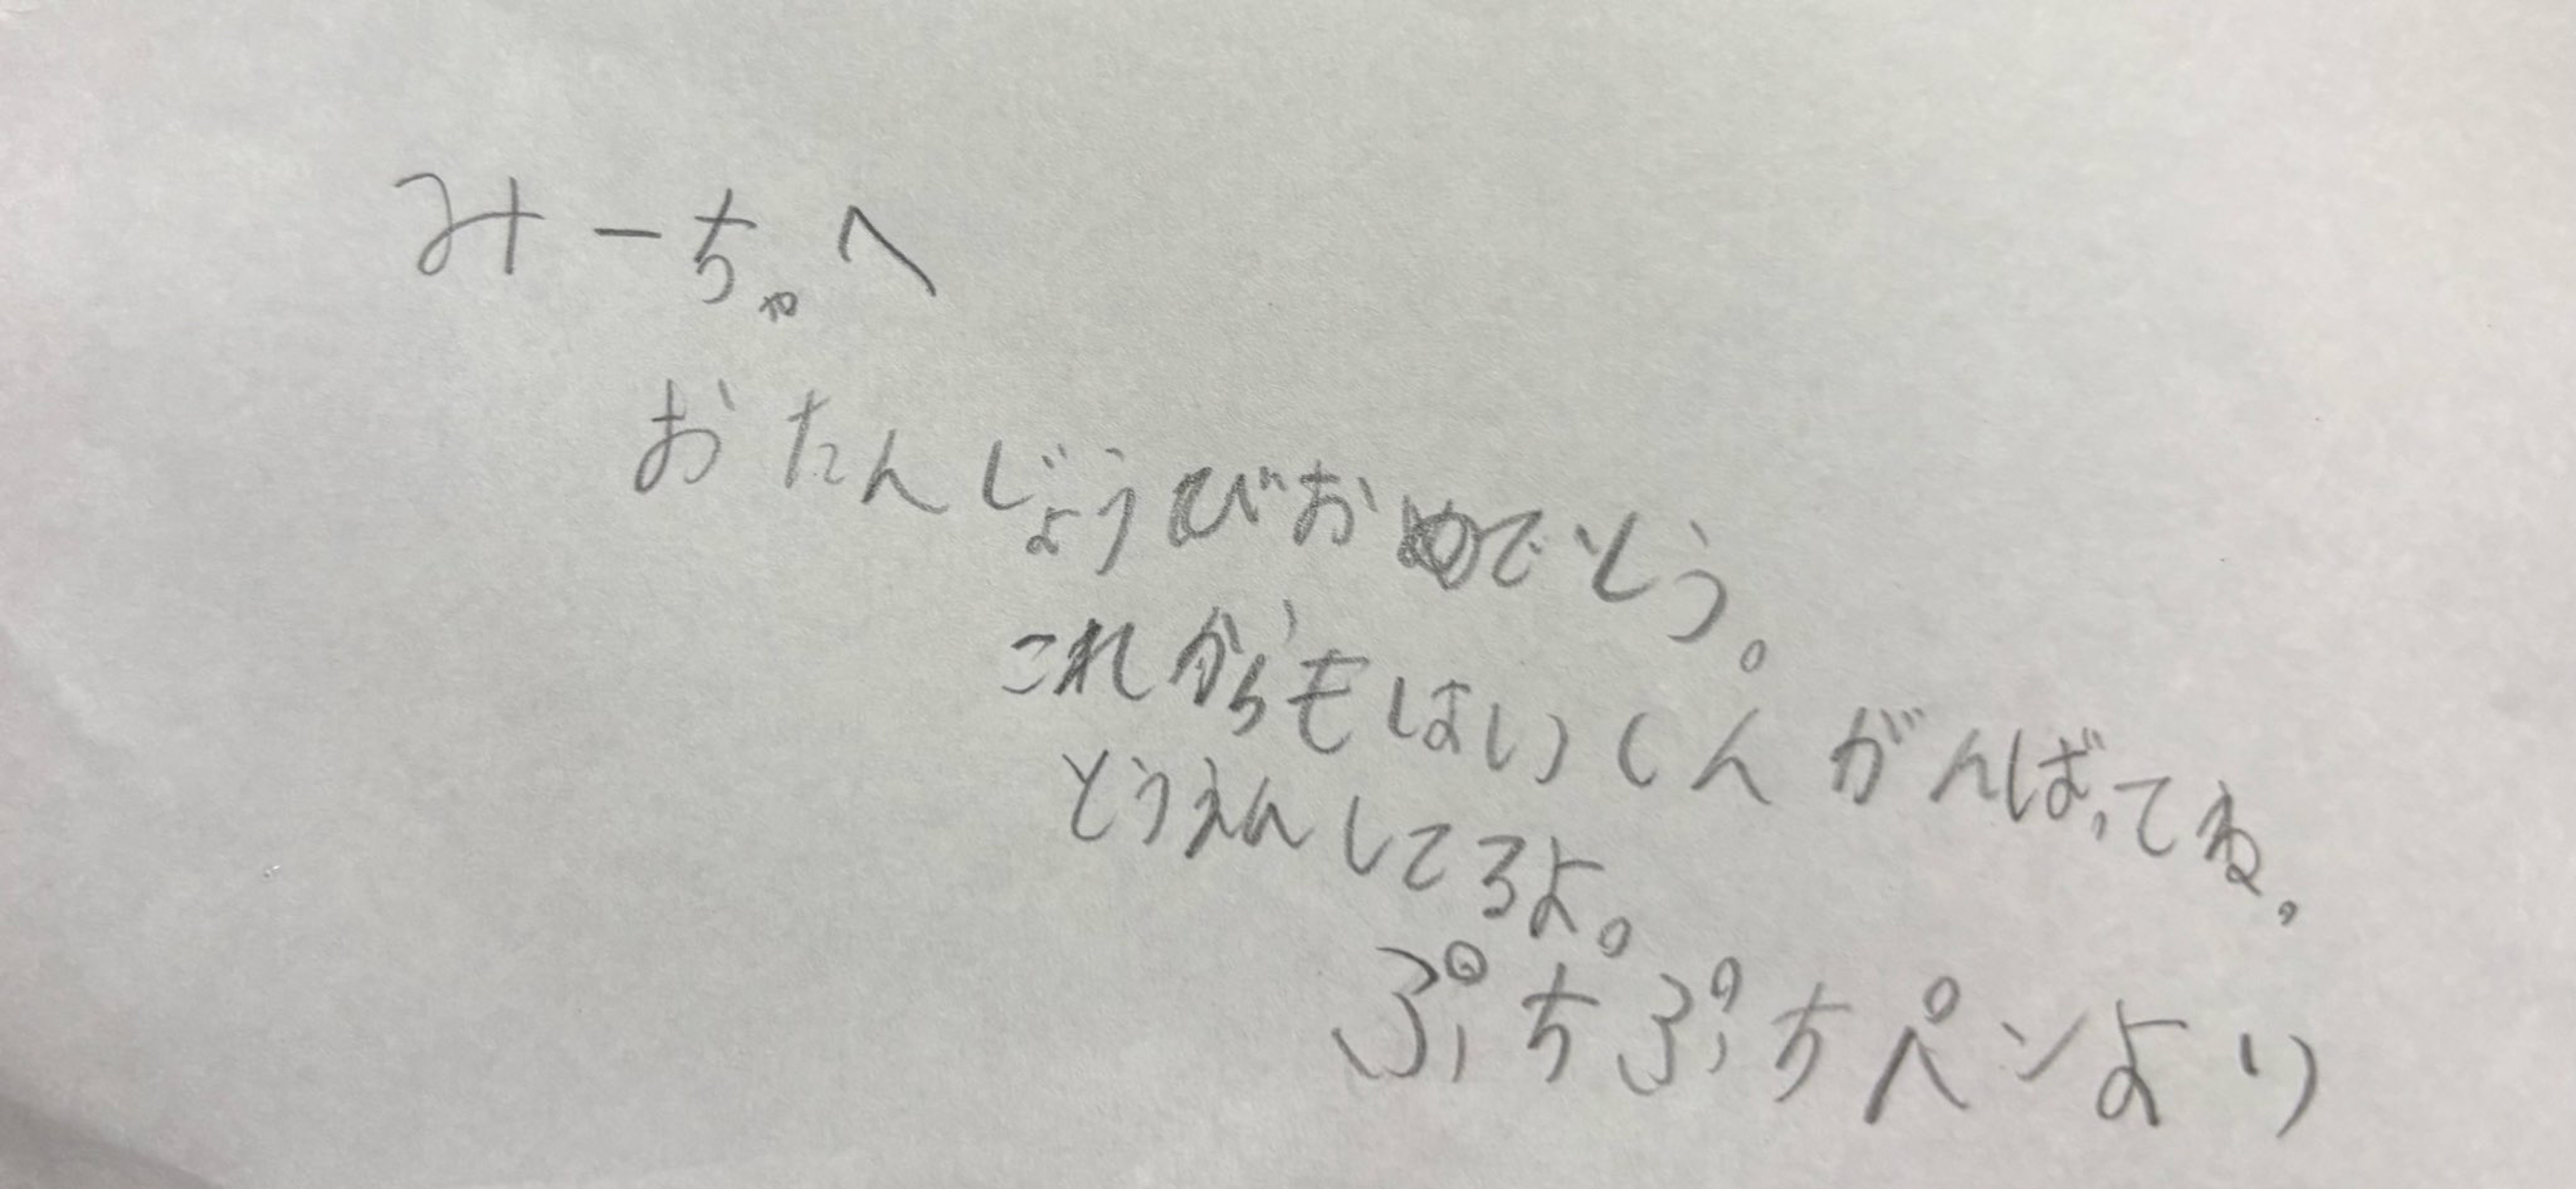 みーちゃへ
おたんじょうびおめでとう。
これからもはいくんがんばってね。
とうえんしてろよ。
ぷちぷちペンより